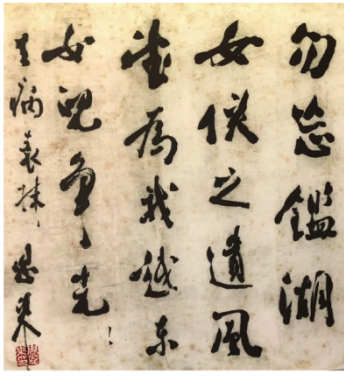 勿忘鑑湖
女俠之遺風
望為我越東
女兒爭光!
去病表妹 恩来